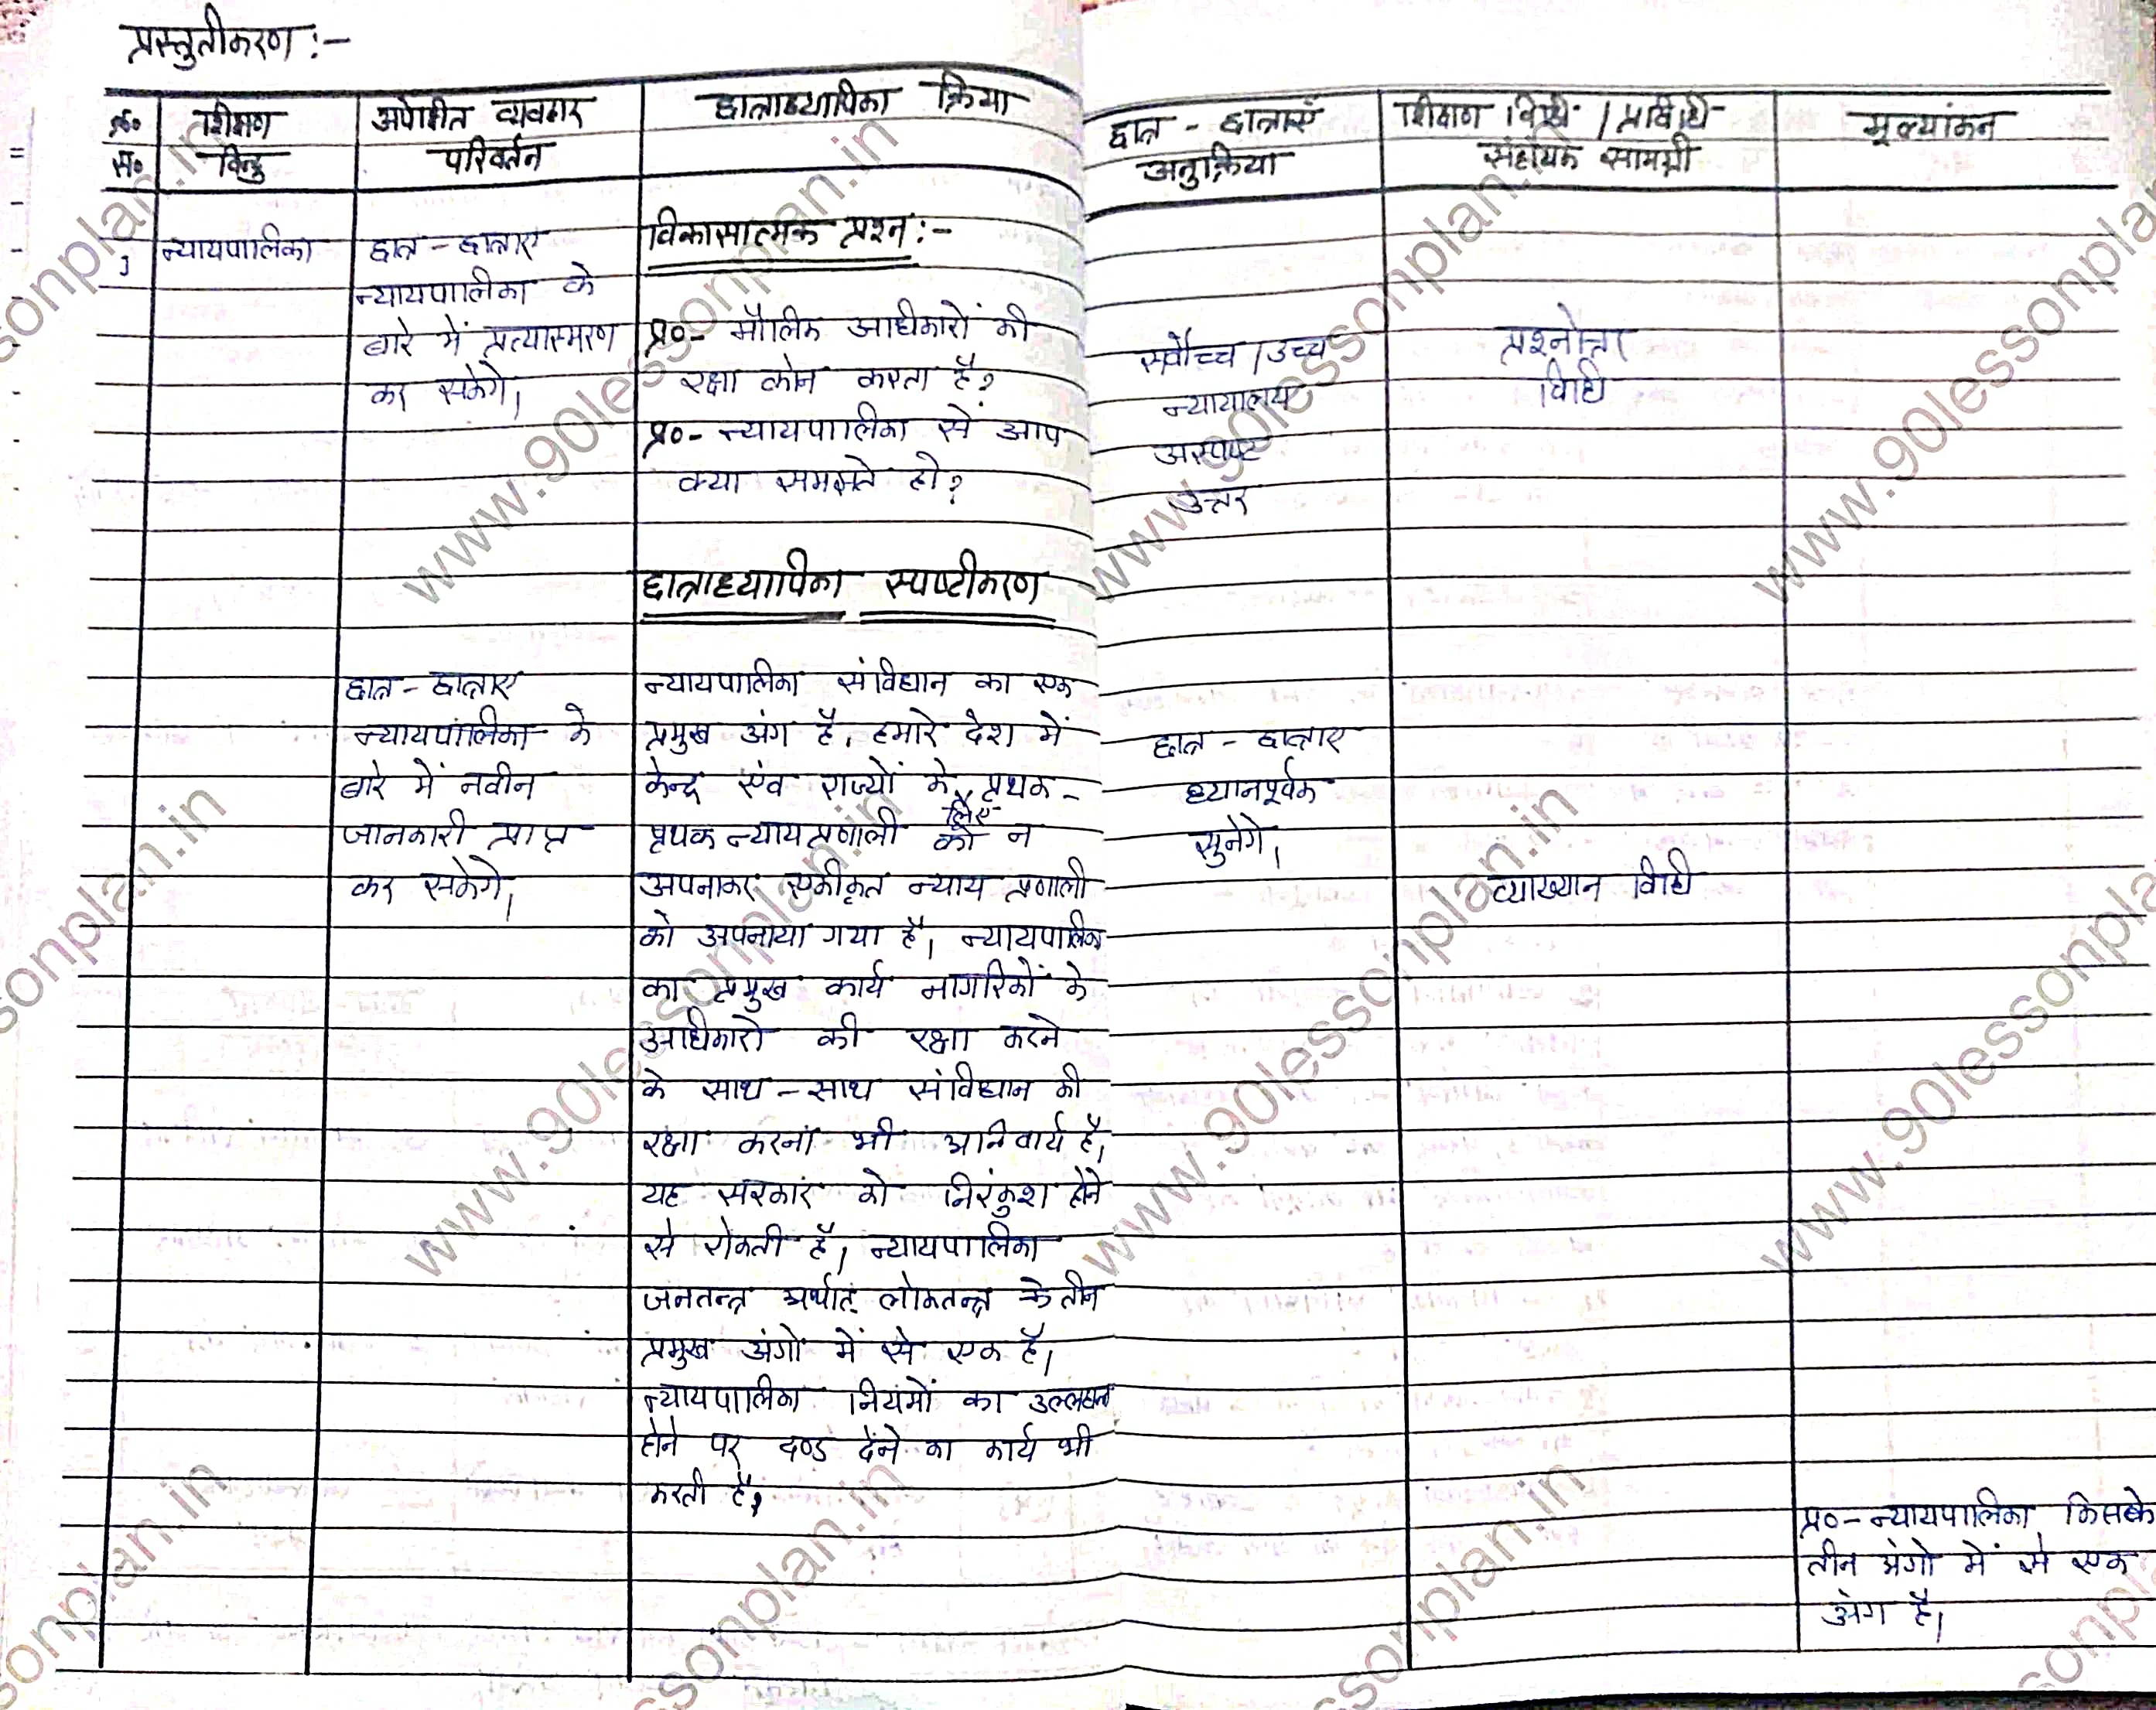 प्रस्तुतीकरण :-
क्र०
स०
शिक्षण
बिन्दु
अपेक्षित व्यवहार
परिवर्तन
छात्राध्यापिका क्रिया
छात्र - छात्राएँ
अनुक्रिया
शिक्षण विधि / प्रविधि
सहायक सामग्री
मूल्यांकन
1
न्यायपालिका
छात्र - छात्राए
न्यायपालिका के
बारे में प्रत्यास्मरण
कर सकेगे।
विकासात्मक प्रश्न :-
प्र०- मौलिक अधिकारों की
रक्षा कौन करता है?
प्र०- न्यायपालिका से आप
क्या समझते हो?
सर्वोच्च / उच्च
न्यायालय
अस्पष्ट
उत्तर
प्रश्नोत्तर
विधि
छात्राध्यापिका स्पष्टीकरण
छात्र - छात्राए
न्यायपालिका के
बारे में नवीन
जानकारी प्राप्त
कर सकेगे।
न्यायपालिका संविधान का एक
प्रमुख अंग है। हमारे देश में
केन्द्र एंव राज्यों के प्रथक -
लिए
प्रथक न्याय प्रणाली को न
अपनाकर एकीकृत न्याय प्रणाली
को अपनाया गया है। न्यायपालिका
का प्रमुख कार्य नागरिकों के
अधिकारो की रक्षा करने
के साथ - साथ संविधान की
रक्षा करना भी अनिवार्य है।
यह सरकार को निरंकुश होने
से रोकती है। न्यायपालिका
जनतन्त्र अर्थात् लोकतन्त्र के तीन
प्रमुख अंगो में से एक है।
न्यायपालिका नियमों का उल्लघन
होने पर दण्ड देने का कार्य भी
करती है।
छात्र - छात्राए
ध्यानपूर्वक
सुनेगे।
व्याख्यान विधि
प्र०- न्यायपालिका किसके
तीन अंगो में से एक
अंग है।
www.90lessonplan.in
www.90lessonplan.in
www.90lessonplan.in
www.90lessonplan.in
www.90lessonplan.in
www.90lessonplan.in